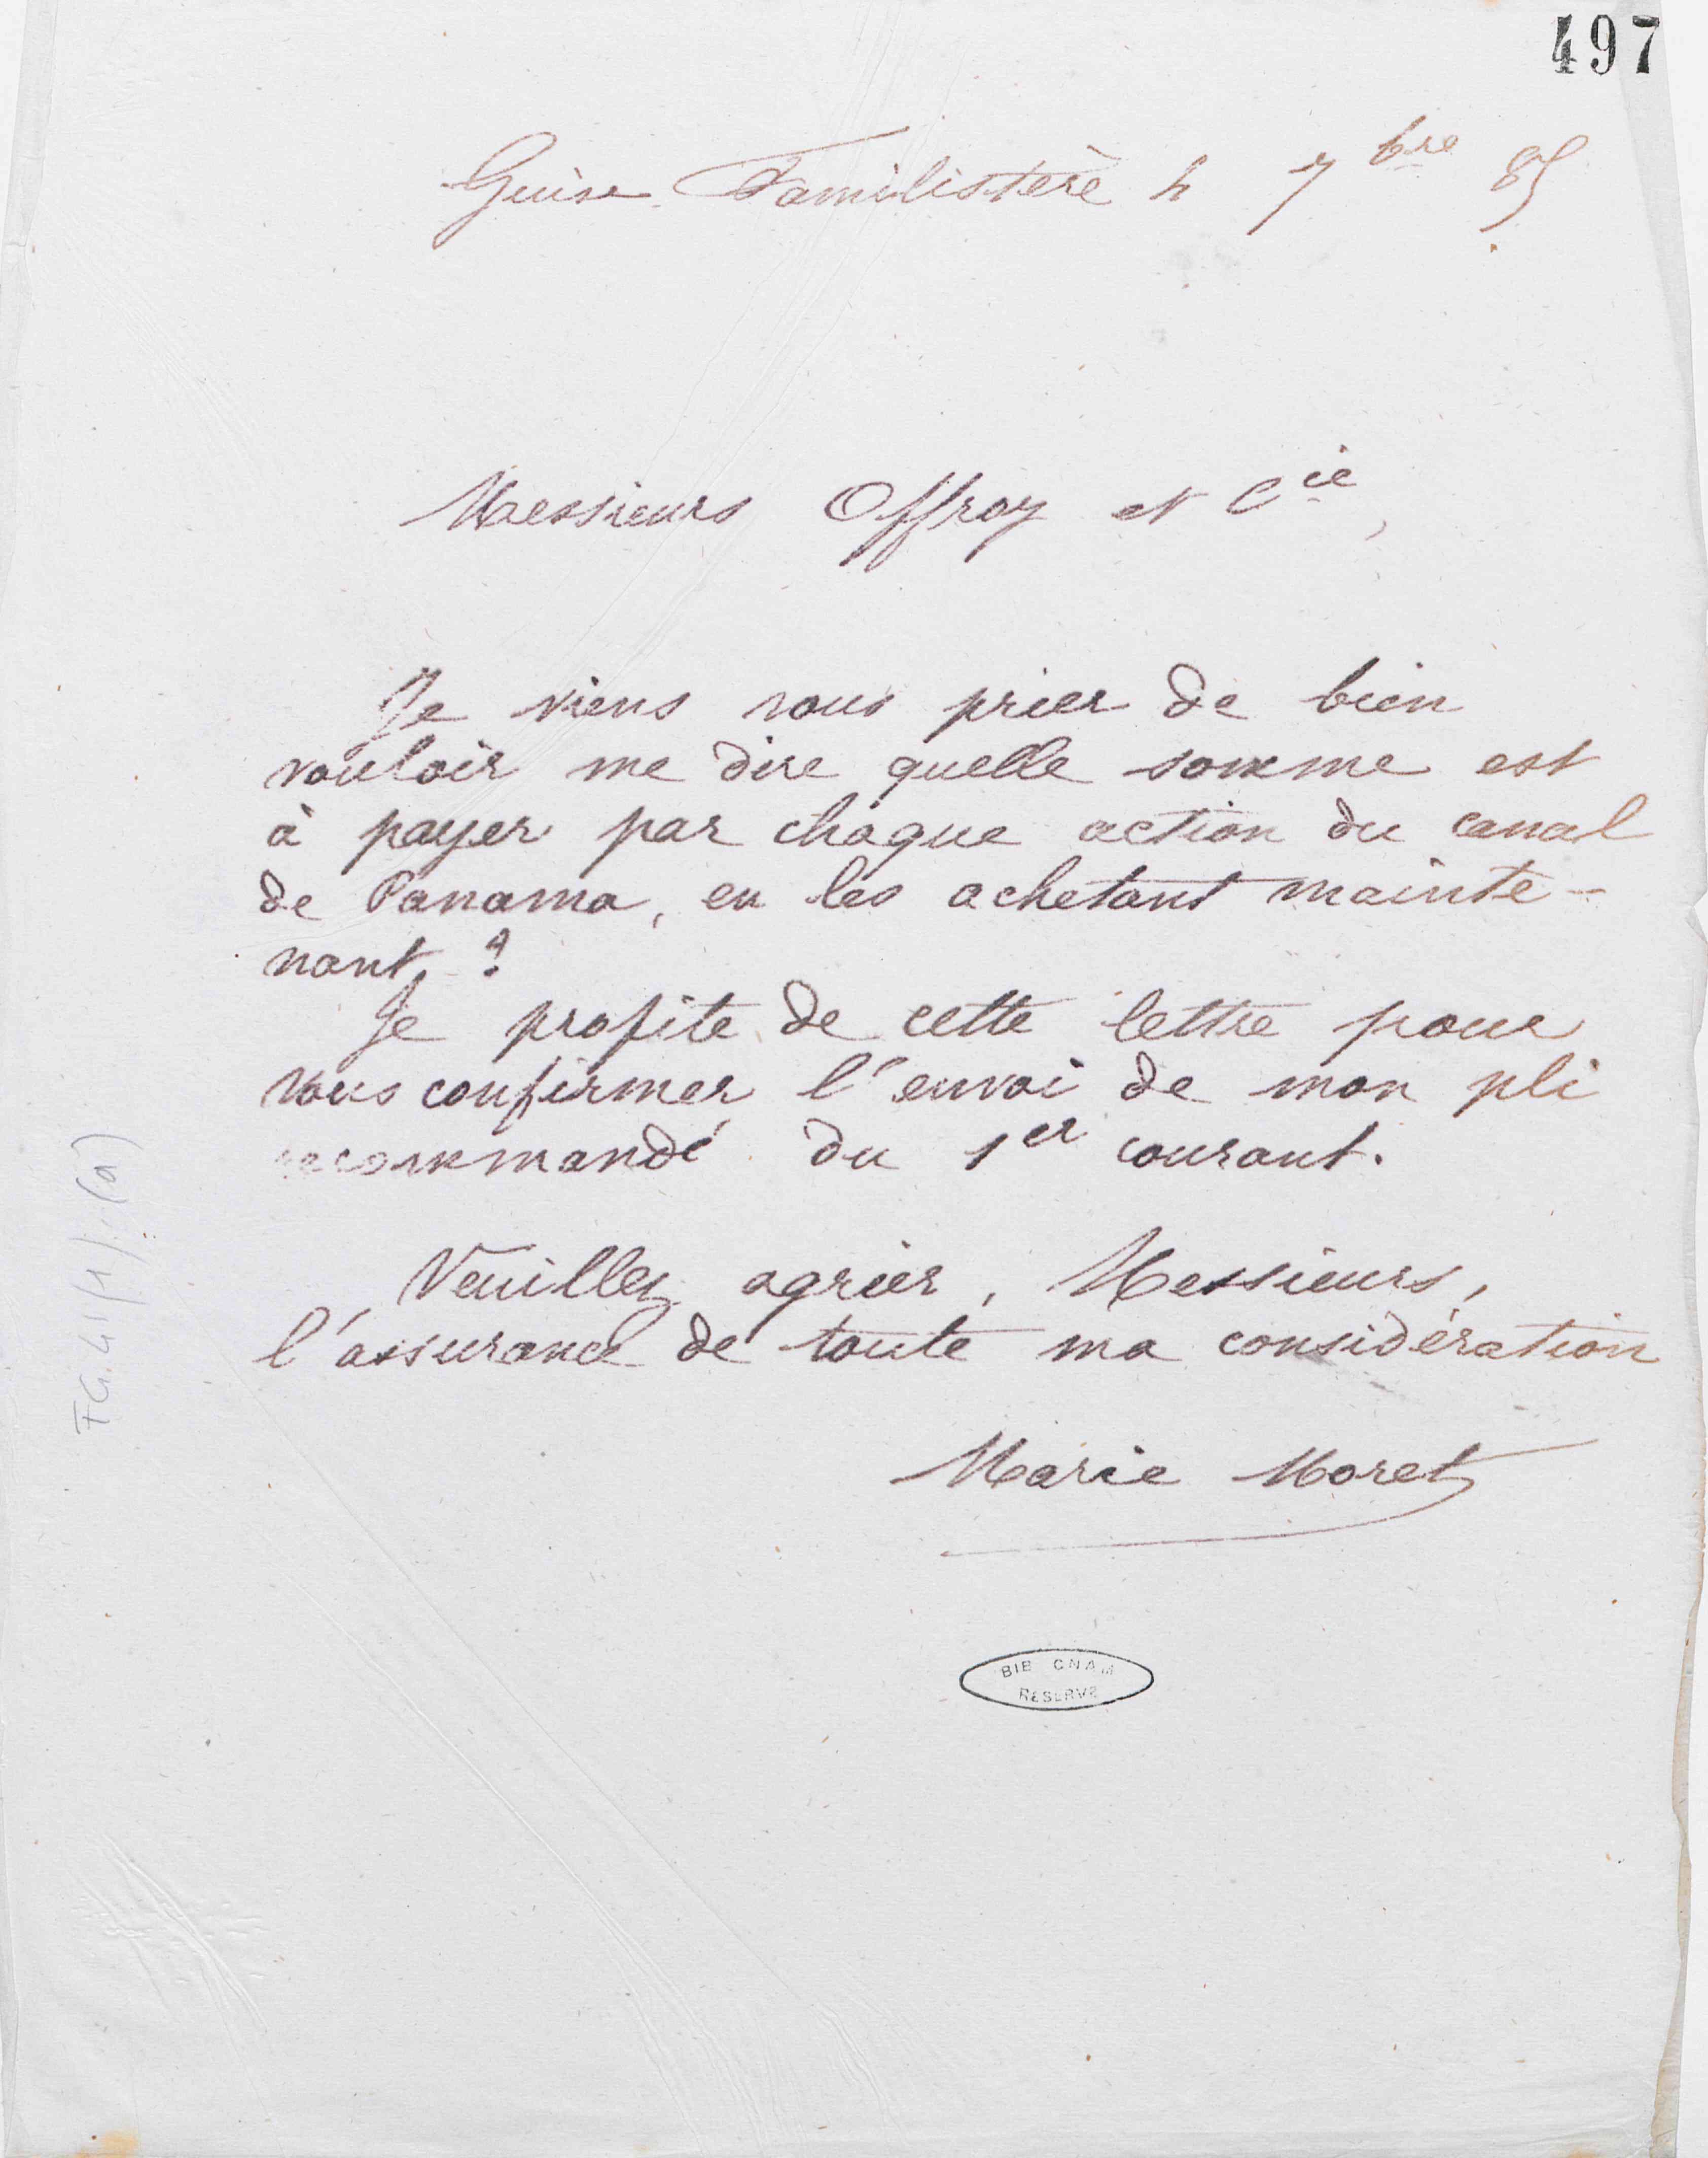 497
Guise Familistère 4 7bre 85
Messieurs Offroy et Cie,
Je viens vous prier de bien
vouloir me dire quelle somme est
à payer par chaque action du canal
de Panama, en les achetant mainte-
nant ?
Je profite de cette lettre pour
vous confirmer l'envoi de mon pli
recommandé du 1er courant.
Veuillez agréer, Messieurs,
l'assurance de toute ma considération
Marie Moret
BIB CNAM
RESERVE